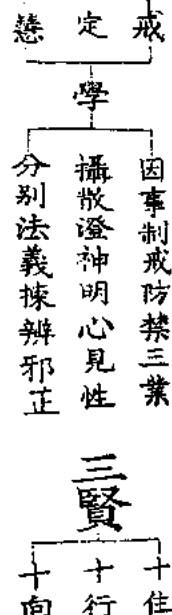 戒
定
慧
學
因事制戒防禁三業
攝散澄神明心見性
分别法義揀辨邪正
三賢
十住
十行
十向